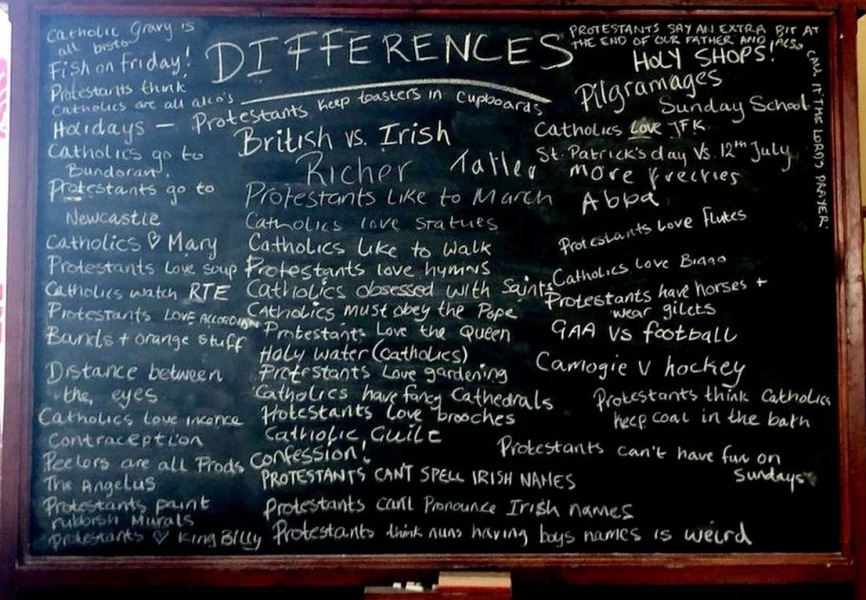 Catholic Gravy is
all bisto
Fish on friday!
Protestants think
Catholics are all alco's
Holidays –
Catholics go to
Bundoran.
Protestants go to
Newcastle
Catholics ♡ Mary
Protestants Love soup
Catholics watch RTE
Protestants LOVE ACCORDION
Bands + orange stuff
Distance between
the eyes
Catholics Love incence
Contraception
Peelers are all Prods
The Angelus
Protestants paint
rubbish Murals
Protestants ♡ King Billy
DIFFERENCES
Protestants keep toasters in Cupboards
British vs. Irish
Richer Taller
Protestants Like to March
Catholics love statues
Catholics Like to Walk
Protestants love hymns
Catholics obsessed with Saints
Catholics must obey the Pope
Protestants Love the Queen
Holy water (catholics)
Protestants Love gardening
Catholics have fancy Cathedrals
Protestants Love brooches
Catholic Guilt
Confession!
PROTESTANTS CAN'T SPELL IRISH NAMES
Protestants can't Pronounce Irish names
Protestants think nuns having boys names is weird
PROTESTANTS SAY AN EXTRA BIT AT
THE END OF OUR FATHER AND ALSO
CALL IT THE LORDS PRAYER.
HOLY SHOPS!
Pilgramages
Sunday School
Catholics Love JFK
St. Patrick's day Vs. 12th July
More freckles
Abba
Protestants Love Flutes
Catholics Love Bingo
Protestants have horses +
wear gilets
GAA Vs football
Camogie V hockey
Protestants think Catholics
keep coal in the bath
Protestants can't have fun on
Sundays